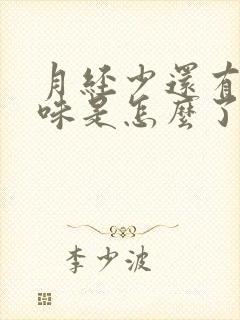 月經少還有
味是怎麼了
李少波